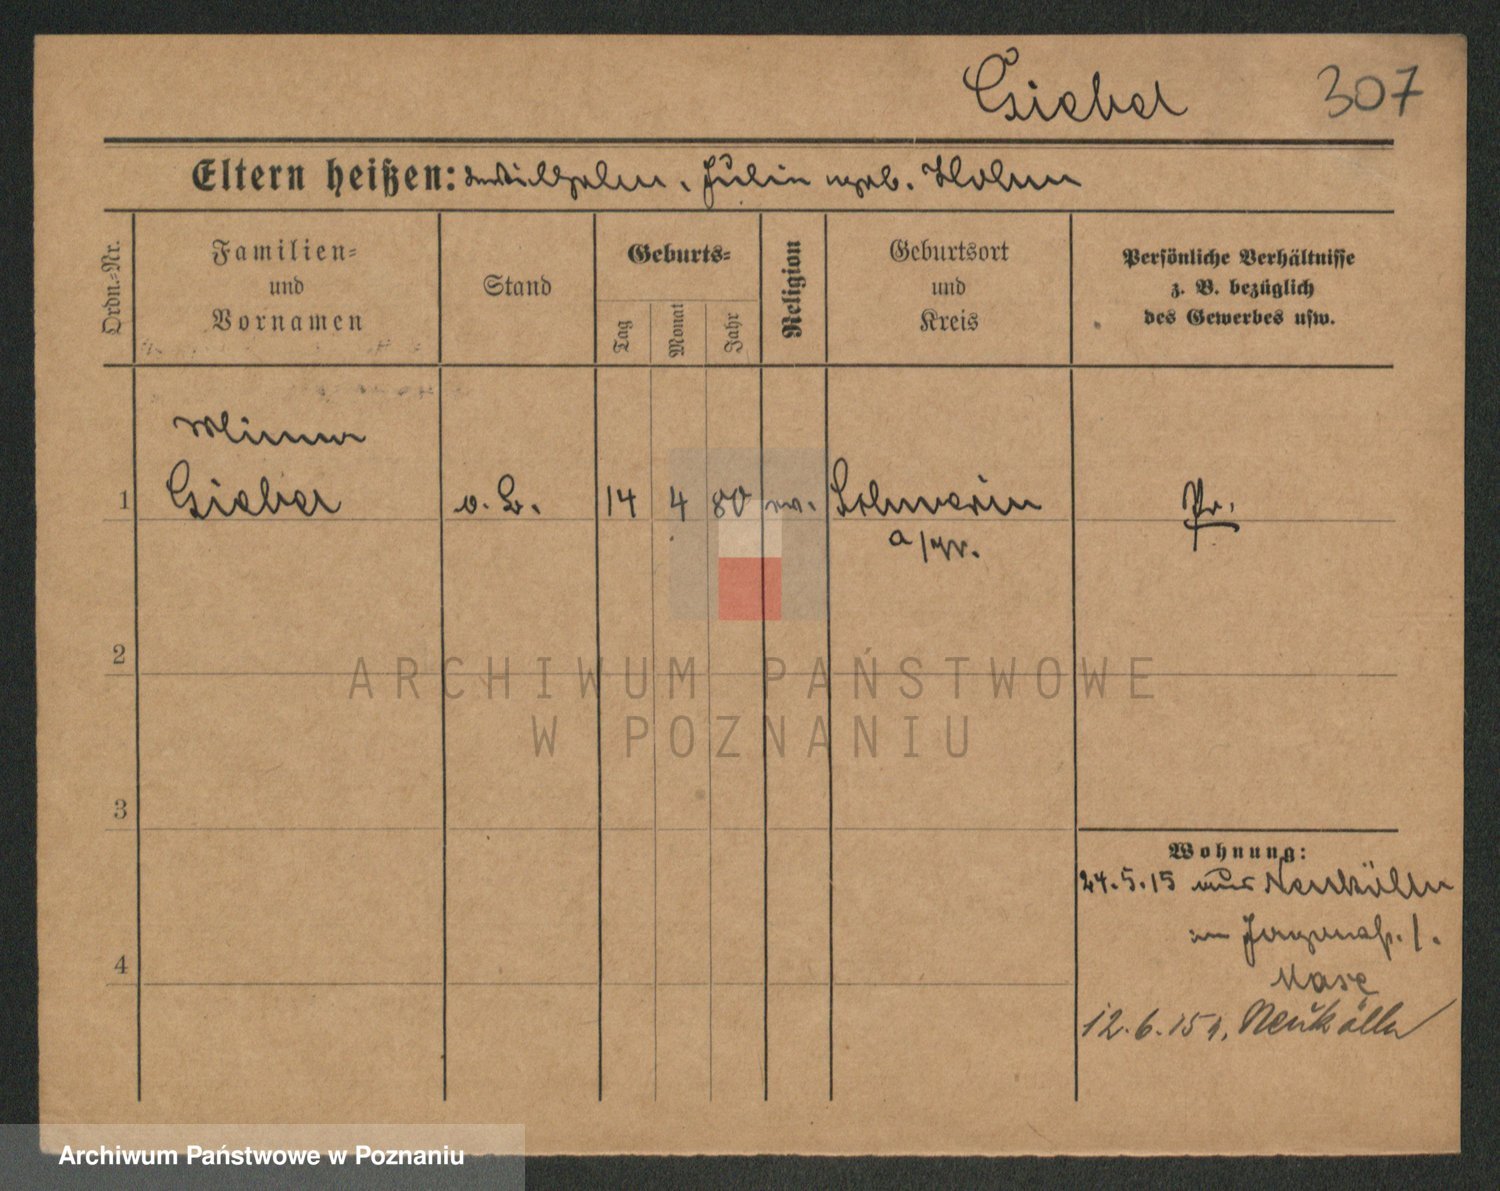 Giebel 307
Eltern heißen: Wilhelm, Julie geb.
Ordn.=Nr.
Familien=
und
Vornamen
Stand
Geburts=
Tag
Monat
Jahr
Religion
Geburtsort
und
Kreis
Persönliche Verhältnisse
z. B. bezüglich
des Gewerbes usw.
1
Giebel
14 4 80
Schwerin
a/W.
Pr.
2
3
4
Wohnung:
24.5.15 aus Neukölln
12.6.15 n. Neukölln
ARCHIWUM PAŃSTWOWE
W POZNANIU
Archiwum Państwowe w Poznaniu